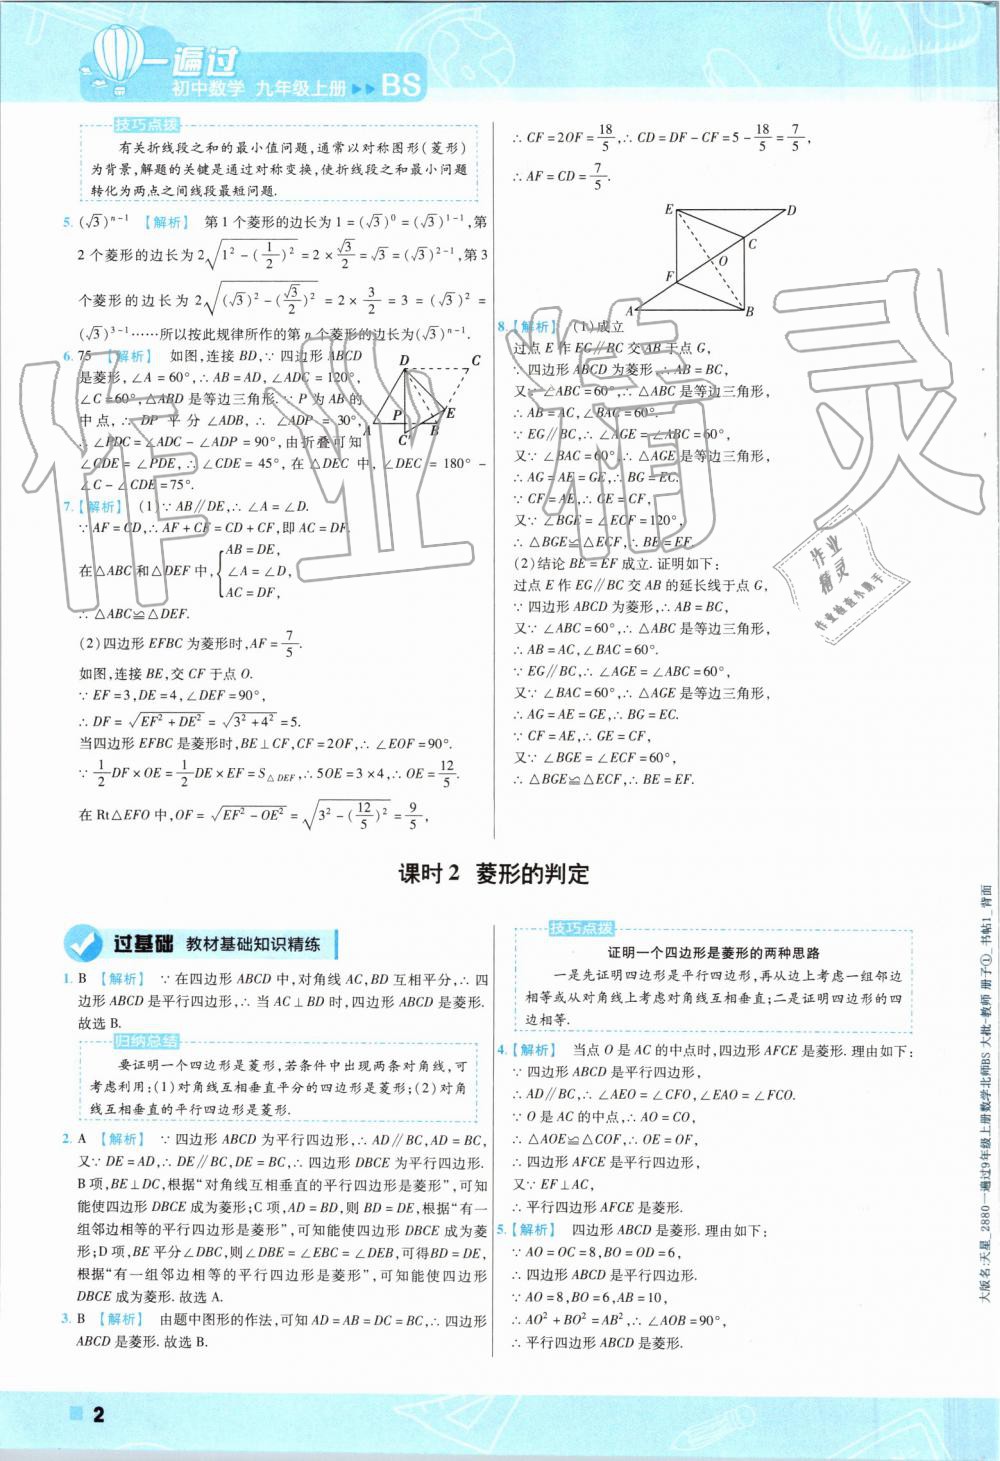 一遍过
初中数学 九年级上册 ▶▶ BS
技巧点拨
有关折线段之和的最小值问题,通常以对称图形(菱形)
为背景,解题的关键是通过对称变换,使折线段之和最小问题
转化为两点之间线段最短问题.
5. (√3)ⁿ⁻¹ 【解析】 第1个菱形的边长为1=(√3)⁰=(√3)¹⁻¹,第
2个菱形的边长为2√(1²-(1/2)²)=2×√3/2=√3=(√3)²⁻¹,第3
个菱形的边长为2√((√3)²-(√3/2)²)=2×3/2=3=(√3)²=
(√3)³⁻¹……所以按此规律所作的第n个菱形的边长为(√3)ⁿ⁻¹.
6. 75 【解析】 如图,连接BD,∵四边形ABCD
是菱形,∠A=60°,∴AB=AD,∠ADC=120°,
∠C=60°,△ABD是等边三角形.∵P为AB的
中点,∴DP平分∠ADB,∴∠ADP=30°,
∴∠PDC=∠ADC-∠ADP=90°,由折叠可知
∠CDE=∠PDE,∴∠CDE=45°,在△DEC中,∠DEC=180°-
∠C-∠CDE=75°.
D C P E A B C'
7.【解析】 (1)∵AB∥DE,∴∠A=∠D.
∵AF=CD,∴AF+CF=CD+CF,即AC=DF.
在△ABC和△DEF中,{AB=DE,
∠A=∠D,
AC=DF,
∴△ABC≌△DEF.
(2)四边形EFBC为菱形时,AF=7/5.
如图,连接BE,交CF于点O.
∵EF=3,DE=4,∠DEF=90°,
∴DF=√(EF²+DE²)=√(3²+4²)=5.
当四边形EFBC是菱形时,BE⊥CF,CF=2OF,∴∠EOF=90°.
∵1/2DF×OE=1/2DE×EF=S△DEF,∴5OE=3×4,∴OE=12/5.
在Rt△EFO中,OF=√(EF²-OE²)=√(3²-(12/5)²)=9/5,
∴CF=2OF=18/5,∴CD=DF-CF=5-18/5=7/5,
∴AF=CD=7/5.
E D C O F A B
8.【解析】 (1)成立
过点E作EG∥BC交AB于点G,
∵四边形ABCD为菱形,∴AB=BC,
又∵∠ABC=60°,∴△ABC是等边三角形,
∴AB=AC,∠BAC=60°.
∵EG∥BC,∴∠AGE=∠ABC=60°,
又∵∠BAC=60°,∴△AGE是等边三角形,
∴AG=AE=GE,∴BG=EC.
∵CF=AE,∴GE=CF,
又∵∠BGE=∠ECF=120°,
∴△BGE≌△ECF,∴BE=EF.
(2)结论BE=EF成立.证明如下:
过点E作EG∥BC交AB的延长线于点G,
∵四边形ABCD为菱形,∴AB=BC,
又∵∠ABC=60°,∴△ABC是等边三角形,
∴AB=AC,∠BAC=60°.
∵EG∥BC,∴∠AGE=∠ABC=60°,
又∵∠BAC=60°,∴△AGE是等边三角形,
∴AG=AE=GE,∴BG=EC.
∵CF=AE,∴GE=CF,
又∵∠BGE=∠ECF=60°,
∴△BGE≌△ECF,∴BE=EF.
课时2 菱形的判定
过基础 教材基础知识精练
1. B 【解析】 ∵在四边形ABCD中,对角线AC,BD互相平分,∴四
边形ABCD是平行四边形,∴当AC⊥BD时,四边形ABCD是菱形.
故选B.
归纳总结
要证明一个四边形是菱形,若条件中出现两条对角线,可
考虑利用:(1)对角线互相垂直平分的四边形是菱形;(2)对角
线互相垂直的平行四边形是菱形.
2. A 【解析】 ∵四边形ABCD为平行四边形,∴AD∥BC,AD=BC,
又∵DE=AD,∴DE∥BC,DE=BC,∴四边形DBCE为平行四边形.
B项,BE⊥DC,根据“对角线互相垂直的平行四边形是菱形”,可知
能使四边形DBCE成为菱形;C项,AD=BD,则BD=DE,根据“有一
组邻边相等的平行四边形是菱形”,可知能使四边形DBCE成为菱
形;D项,BE平分∠DBC,则∠DBE=∠EBC=∠DEB,可得BD=DE,
根据“有一组邻边相等的平行四边形是菱形”,可知能使四边形
DBCE成为菱形.故选A.
3. B 【解析】 由题中图形的作法,可知AD=AB=DC=BC,∴四边形
ABCD是菱形.故选B.
技巧点拨
证明一个四边形是菱形的两种思路
一是先证明四边形是平行四边形,再从边上考虑一组邻边
相等或从对角线上考虑对角线互相垂直;二是证明四边形的四
边相等.
4.【解析】 当点O是AC的中点时,四边形AFCE是菱形.理由如下:
∵四边形ABCD是平行四边形,
∴AD∥BC,∴∠AEO=∠CFO,∠EAO=∠FCO.
∵O是AC的中点,∴AO=CO,
∴△AOE≌△COF,∴OE=OF,
∴四边形AFCE是平行四边形,
又∵EF⊥AC,
∴平行四边形AFCE是菱形.
5.【解析】 四边形ABCD是菱形.理由如下:
∵AO=OC=8,BO=OD=6,
∴四边形ABCD是平行四边形.
∵AO=8,BO=6,AB=10,
∴AO²+BO²=AB²,∴∠AOB=90°,
∴平行四边形ABCD是菱形.
2
大版名:天星_2880一遍过9年级上册数学北师BS 大批-教师 册子①_书帖1_背面
作业精灵
作业
精灵
作业检查小助手